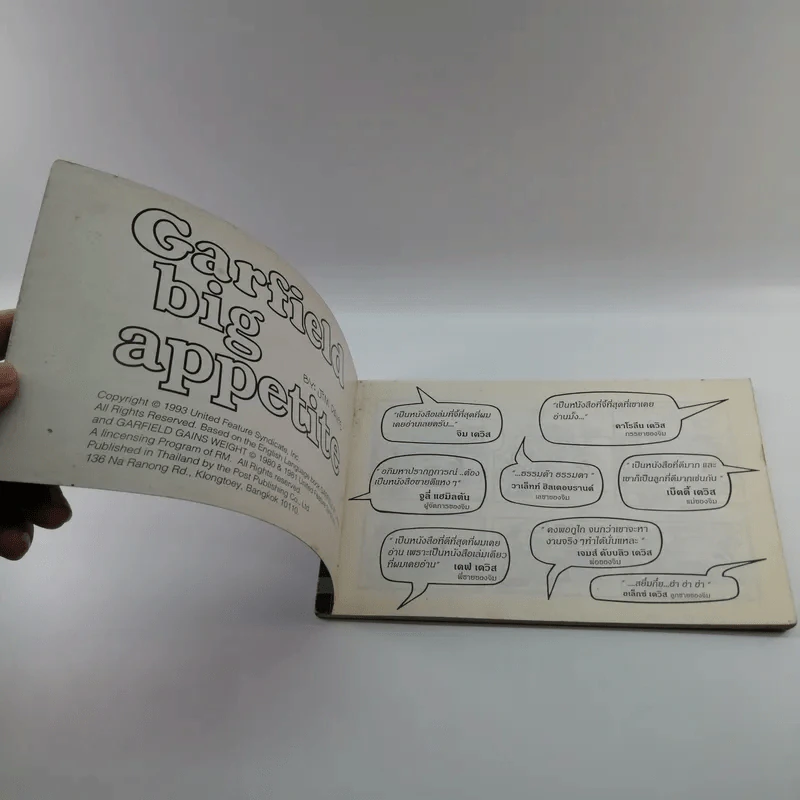 Garfield
big
appetite
BY: JIM DAVIS
Copyright © 1993 United Feature Syndicate, Inc.
All Rights Reserved. Based on the English Language book
and GARFIELD GAINS WEIGHT © 1980 & 1981 United Feature
A lincensing Program of RM. All Rights reserved.
Published in Thailand by the Post Publishing Co., Ltd.
136 Na Ranong Rd., Klongtoey, Bangkok 10110.
"เป็นหนังสือเล่มที่จี๊ที่สุดที่ผม
เคยอ่านเลยครับ..."
จิม เดวิส
"เป็นหนังสือที่จี๊ที่สุดที่เขาเคย
อ่านมั้ง..."
คาโรลีน เดวิส
ภรรยาของจิม
"อภิมหาปรากฏการณ์..ต้อง
เป็นหนังสือขายดีแหง ๆ"
จูลี่ แฮมิลตัน
ผู้จัดการของจิม
"...ธรรมด๊า ธรรมดา"
วาเล็ทท์ ฮิลเดอบรานด์
เลขาของจิม
"เป็นหนังสือที่ดีมาก และ
เขาก็เป็นลูกที่ดีมากเช่นกัน"
เบ็ตตี้ เดวิส
แม่ของจิม
"เป็นหนังสือที่ดีที่สุดที่ผมเคย
อ่าน เพราะเป็นหนังสือเล่มเดียว
ที่ผมเคยอ่าน" เดฟ เดวิส
พี่ชายของจิม
"คงพอถูไถ จนกว่าเขาจะหา
งานจริง ๆทำได้นั่นแหละ"
เจมส์ ดับบลิว เดวิส
พ่อของจิม
"....สยิ๋มกิ๋ย...ฮ่า ฮ่า ฮ่า"
อเล็กซ์ เดวิส ลูกชายของจิม